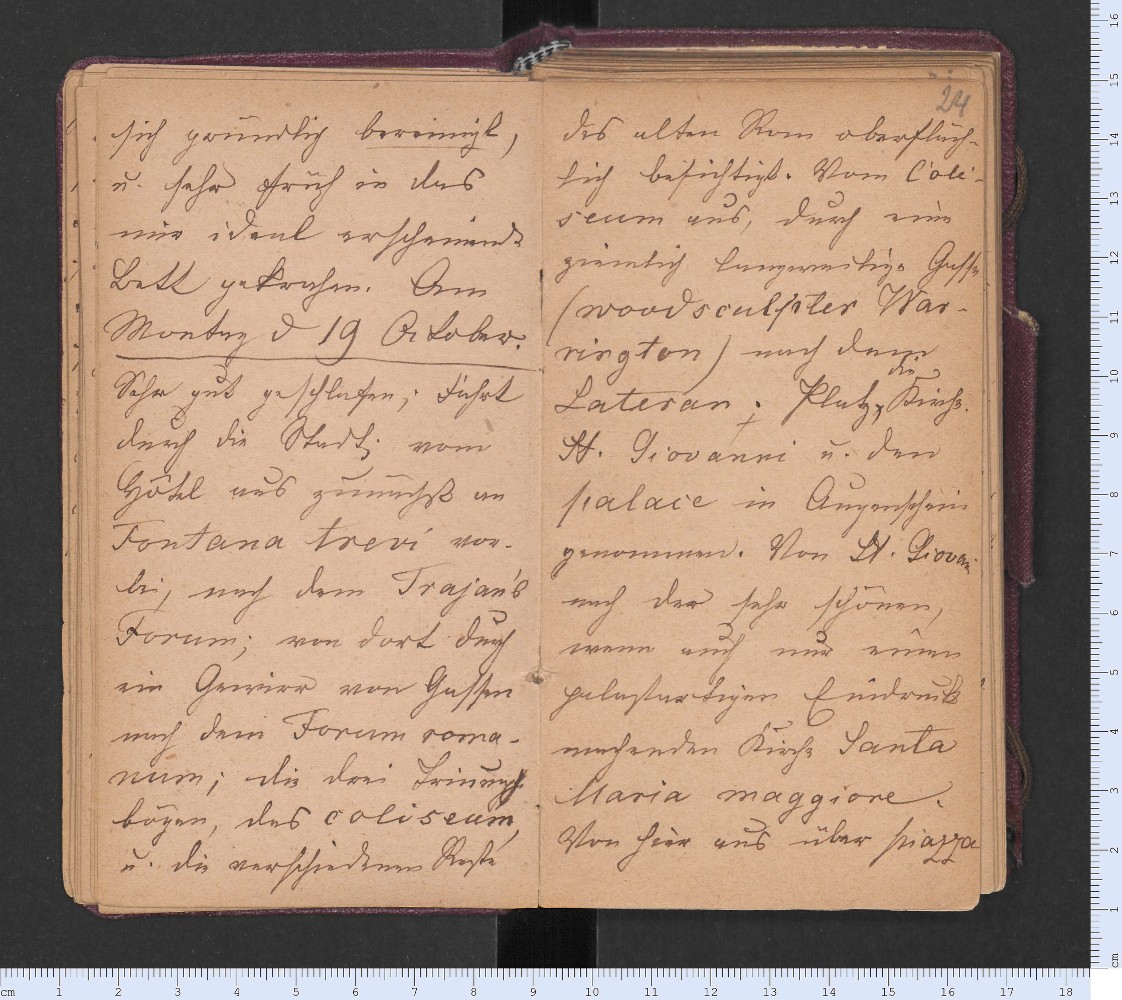 sich gründlich bereinigt,
u. sehr früh in das
mir ideal erscheinende
Bett gekrochen. Am
Montag d 19 October.
Sehr gut geschlafen; Fahrt
durch die Stadt; vom
Hôtel aus zunächst an
Fontana trevi vor-
bei, nach dem Trajan's
Forum; von dort durch
ein Gewirr von Gassen
nach dem Forum roma-
num; die drei Triumph-
bögen, das coliseum,
u. die verschiedenen Reste
24
des alten Rom oberfläch-
lich besichtigt. Vom Coli-
seum aus, durch eine
ziemlich langweilige Gasse
(woodsculpter War-
rington) nach dem
Lateran; Platz, die Kirche
St. Giovanni u. den
palace in Augenschein
genommen. Von St. Giovani
nach der sehr schönen,
wenn auch nur einen
palastartigen Eindruck
machenden Kirche Santa
Maria maggiore.
Von hier aus über piazza